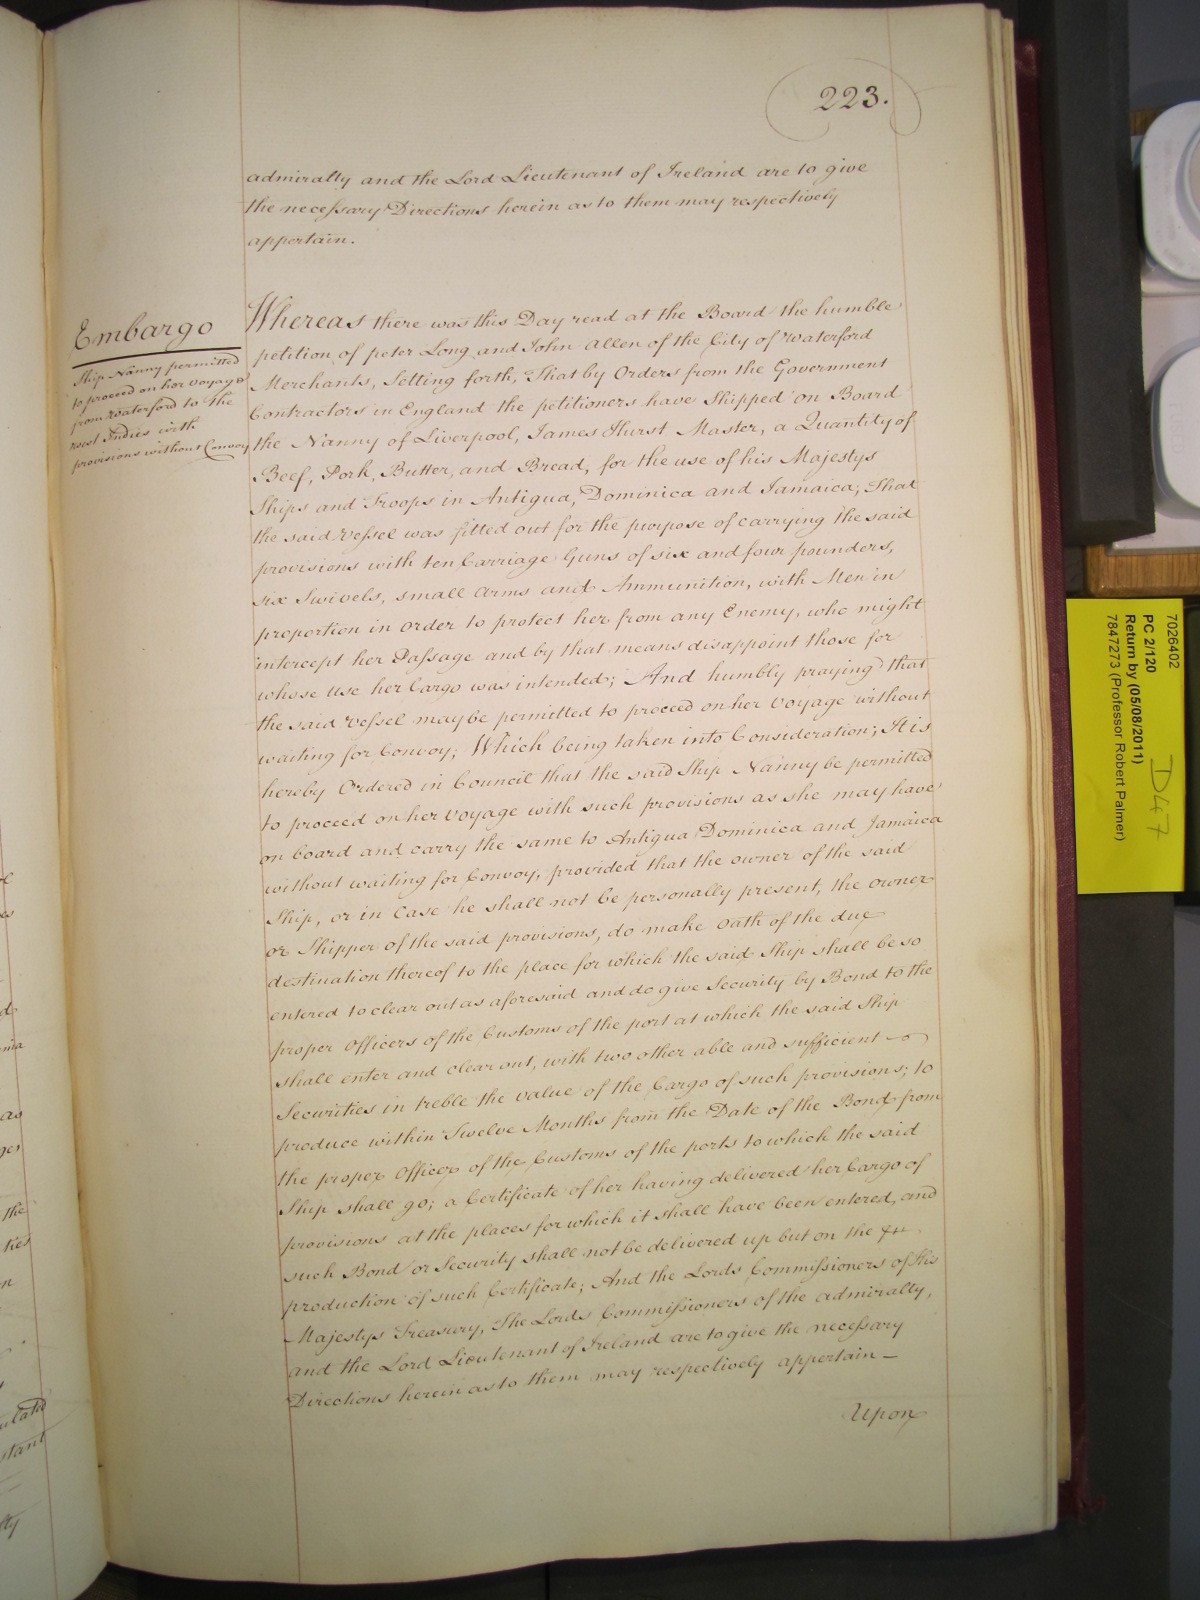 223.
admiralty and the Lord Lieutenant of Ireland are to give
the necessary Directions herein as to them may respectively
appertain.
Embargo
Ship Nanny permitted
to proceed on her voyage
from Waterford to the
West Indies with
provisions without Convoy
Whereas there was this Day read at the Board the humble
petition of peter Long and John Allen of the City of Waterford
Merchants, Setting forth, That by Orders from the Government
Contractors in England the petitioners have Shipped on Board
the Nanny of Liverpool, James Hurst Master, a Quantity of
Beef, Pork, Butter, and Bread, for the use of his Majestys
Ships and Troops in Antigua, Dominica and Jamaica; That
the said Vessel was fitted out for the purpose of carrying the said
provisions with ten Carriage Guns of six and four pounders,
six Swivels, small Arms and Ammunition, with Men in
proportion in order to protect her from any Enemy, who might
intercept her Passage and by that means disappoint those for
whose use her Cargo was intended; And humbly praying that
the said Vessel may be permitted to proceed on her Voyage without
waiting for Convoy; Which being taken into Consideration; It is
hereby Ordered in Council that the said Ship Nanny be permitted
to proceed on her Voyage with such provisions as she may have
on board and carry the same to Antigua Dominica and Jamaica
without waiting for Convoy, provided that the owner of the said
Ship, or in Case he shall not be personally present, the owner
or Shipper of the said provisions, do make Oath of the due
destination thereof to the place for which the said Ship shall be so
entered to clear out as aforesaid and do give Security by Bond to the
proper Officers of the Customs of the port at which the said Ship
shall enter and clear out, with two other able and sufficient
Securities in treble the value of the Cargo of such provisions; to
produce within Twelve Months from the Date of the Bond from
the proper Officer of the Customs of the ports to which the said
Ship shall go; a Certificate of her having delivered her Cargo of
provisions at the places for which it shall have been entered, and
such Bond or Security shall not be delivered up but on the
production of such Certificate; And the Lords Commissioners of His
Majestys Treasury, The Lords Commissioners of the admiralty,
and the Lord Lieutenant of Ireland are to give the necessary
Directions herein as to them may respectively appertain —
Upon
7026402
PC 2/120
Return by (05/08/2011)
7847273 (Professor Robert Palmer)
D47